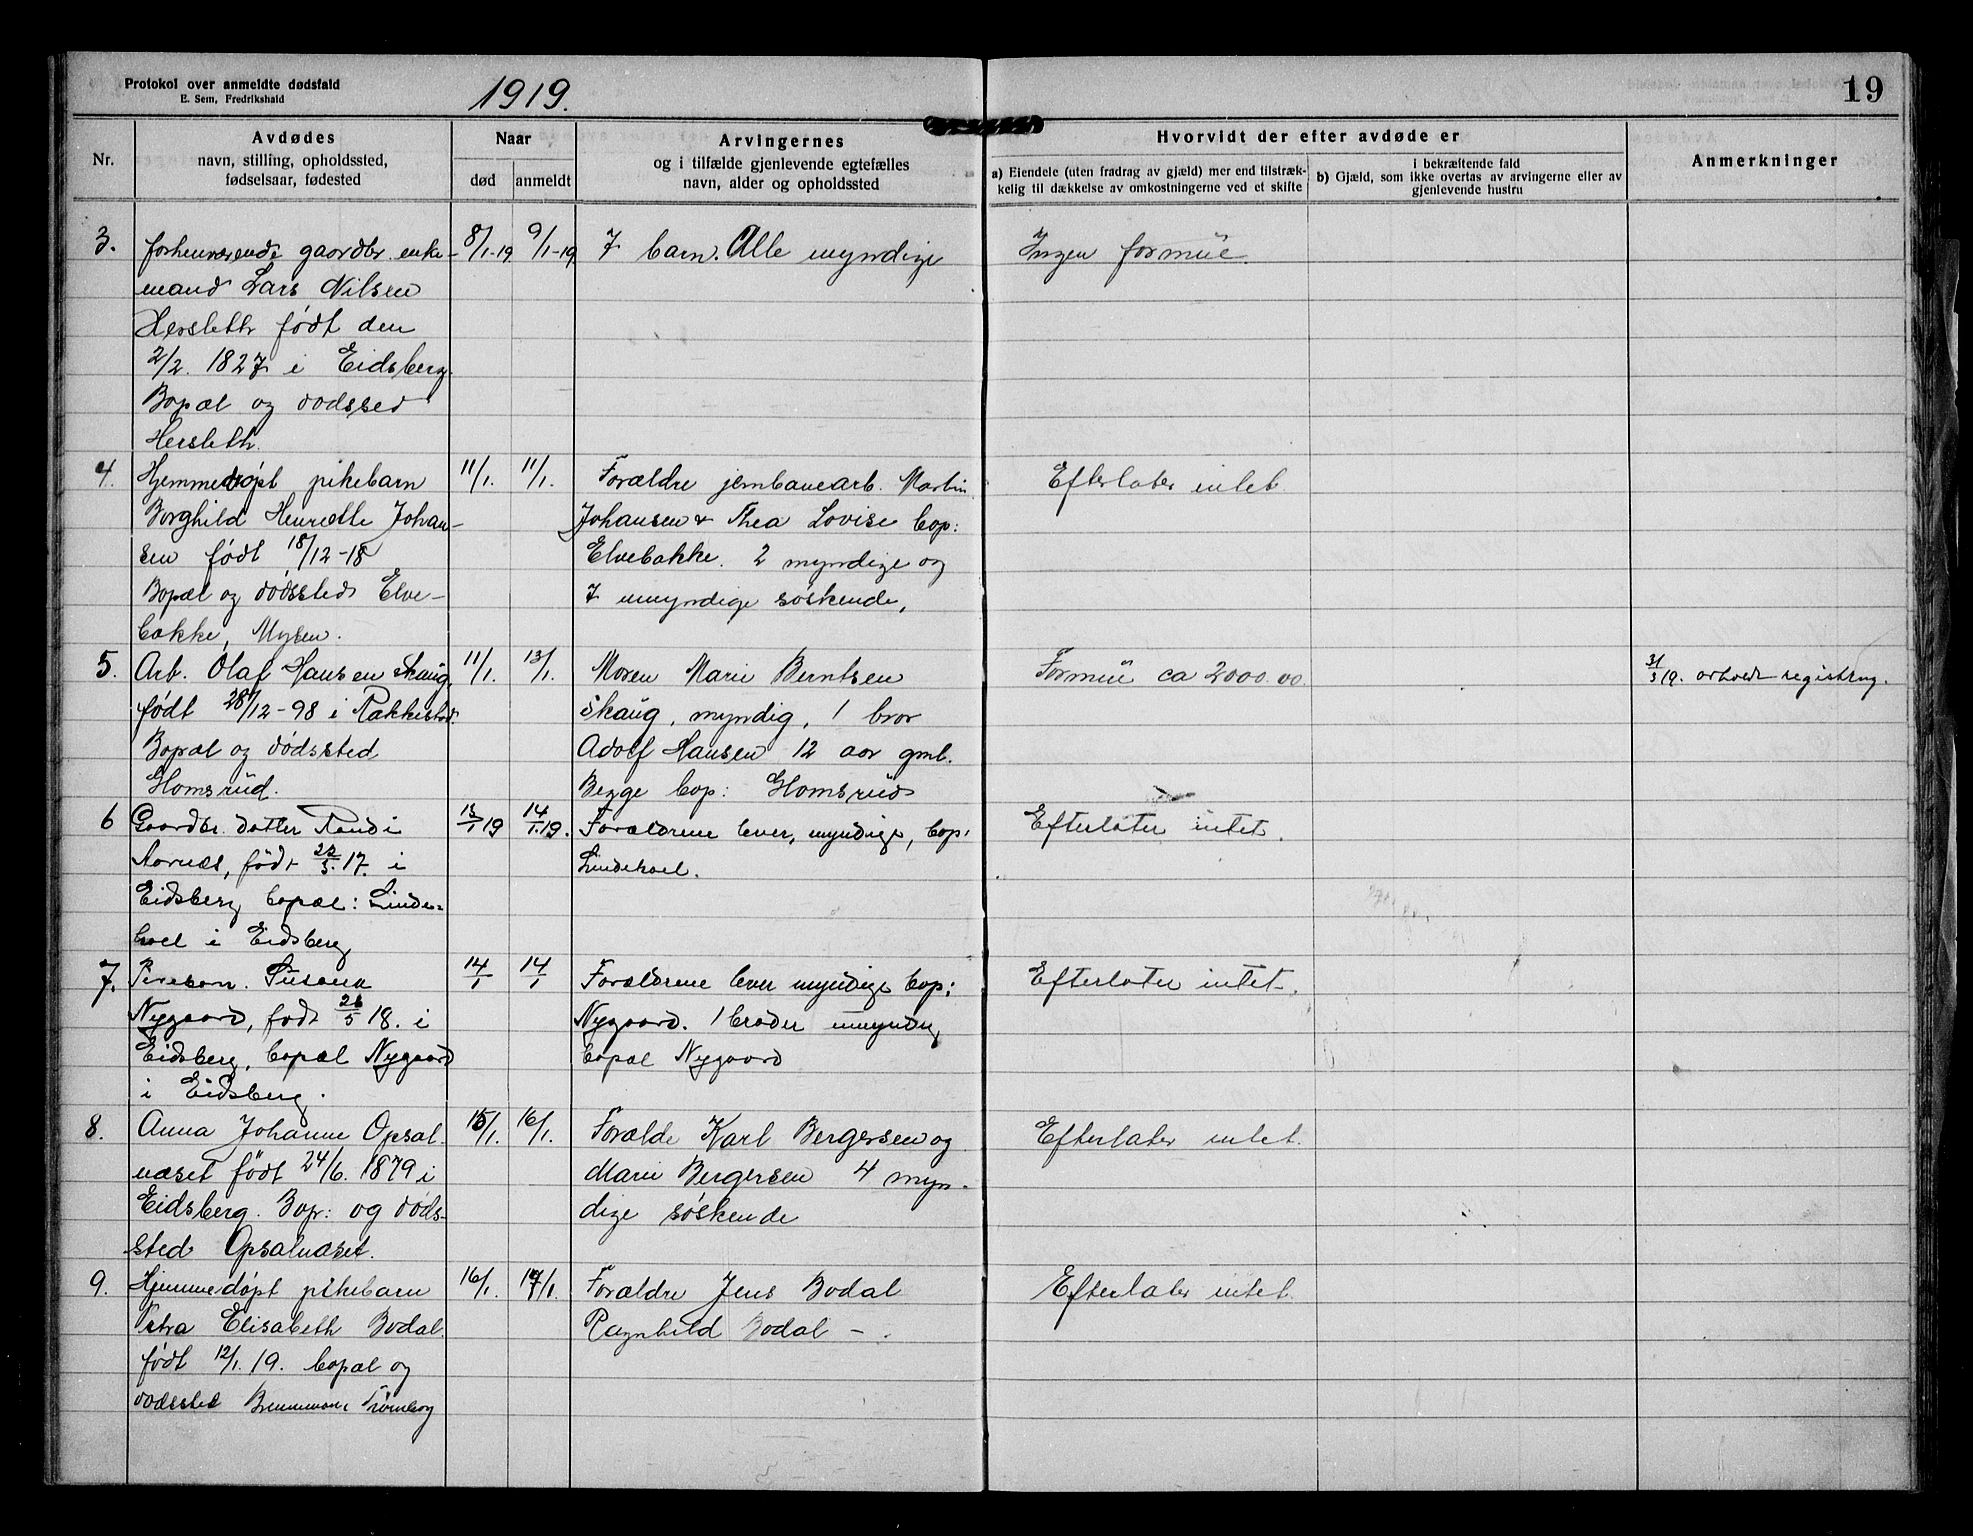 Protokol over anmeldte dødsfald
E. Sem, Fredrikshald
1919.
19
Nr.
Avdødes
navn, stilling, opholdssted,
fødselsaar, fødested
Naar
død
anmeldt
Arvingernes
og i tilfælde gjenlevende egtefælles
navn, alder og opholdssted
Hvorvidt der efter avdøde er
a) Eiendele (uten fradrag av gjæld) mer end tilstræk-
kelig til dækkelse av omkostningerne ved et skifte
i bekræftende fald
b) Gjæld, som ikke overtas av arvingerne eller av
gjenlevende hustru
Anmerkninger
3.
forhenværende gaardbr. enke-
mand Lars Nilsen
Hersleth født den
2/2. 1827 i Eidsberg.
Bopæl og dødssted
Hersleth.
8/1-19
9/1-19
7 barn. Alle myndige
Ingen formue.
4.
Hjemmedøpt pikebarn
Borghild Henriette Johan-
sen født 18/12-18
Bopæl og dødssted Elve-
bakke, Mysen.
11/1.
11/1.
Forældre jernbanearb. Martin
Johansen & Thea Lovise bop:
Elvebakke. 2 myndige og
7 umyndige søskende,
Efterlater intet
5.
Arb. Olaf Hansen Skaug,
født 28/12-98 i Rakkestad.
Bopæl og dødssted
Homsrud.
11/1.
13/1.
Moren Marie Berntsen
Skaug, myndig, 1 bror
Adolf Hansen 12 aar gml.
Begge bop: Homsrud
Formue ca 2000.00.
31/3 19. avholdt registrng.
6
Gaardbr. datter Randi
Aarnæs, født 22/3. 17. i
Eidsberg bopæl: Linde-
hoel i Eidsberg
13/1 19
14/1.19.
Forældrene lever, myndige, bop:
Lindehoel.
Efterlater intet.
7.
Pikebarn. Susana
Nygaard, født 26/5 18. i
Eidsberg, bopæl Nygaard
i Eidsberg.
14/1
14/1
Forældrene lever myndige bop:
Nygaard. 1 broder umyndig
bopæl Nygaard
Efterlater intet.
8.
Anna Johanne Opsal-
næset født 24/6. 1879 i
Eidsberg. Bop: og døds-
sted Opsalnæset.
15/1.
16/1.
Forælde Karl Bergersen og
Marie Bergersen 4 myn-
dige søskende
Efterlater intet.
9.
Hjemmedøpt pikebarn
Petra Elisabeth Bodal.
født 12/1. 19. bopæl og
dødssted Trømborg
16/1.
17/1.
Forældre Jens Bodal
Ragnhild Bodal -.
Efterlater intet.